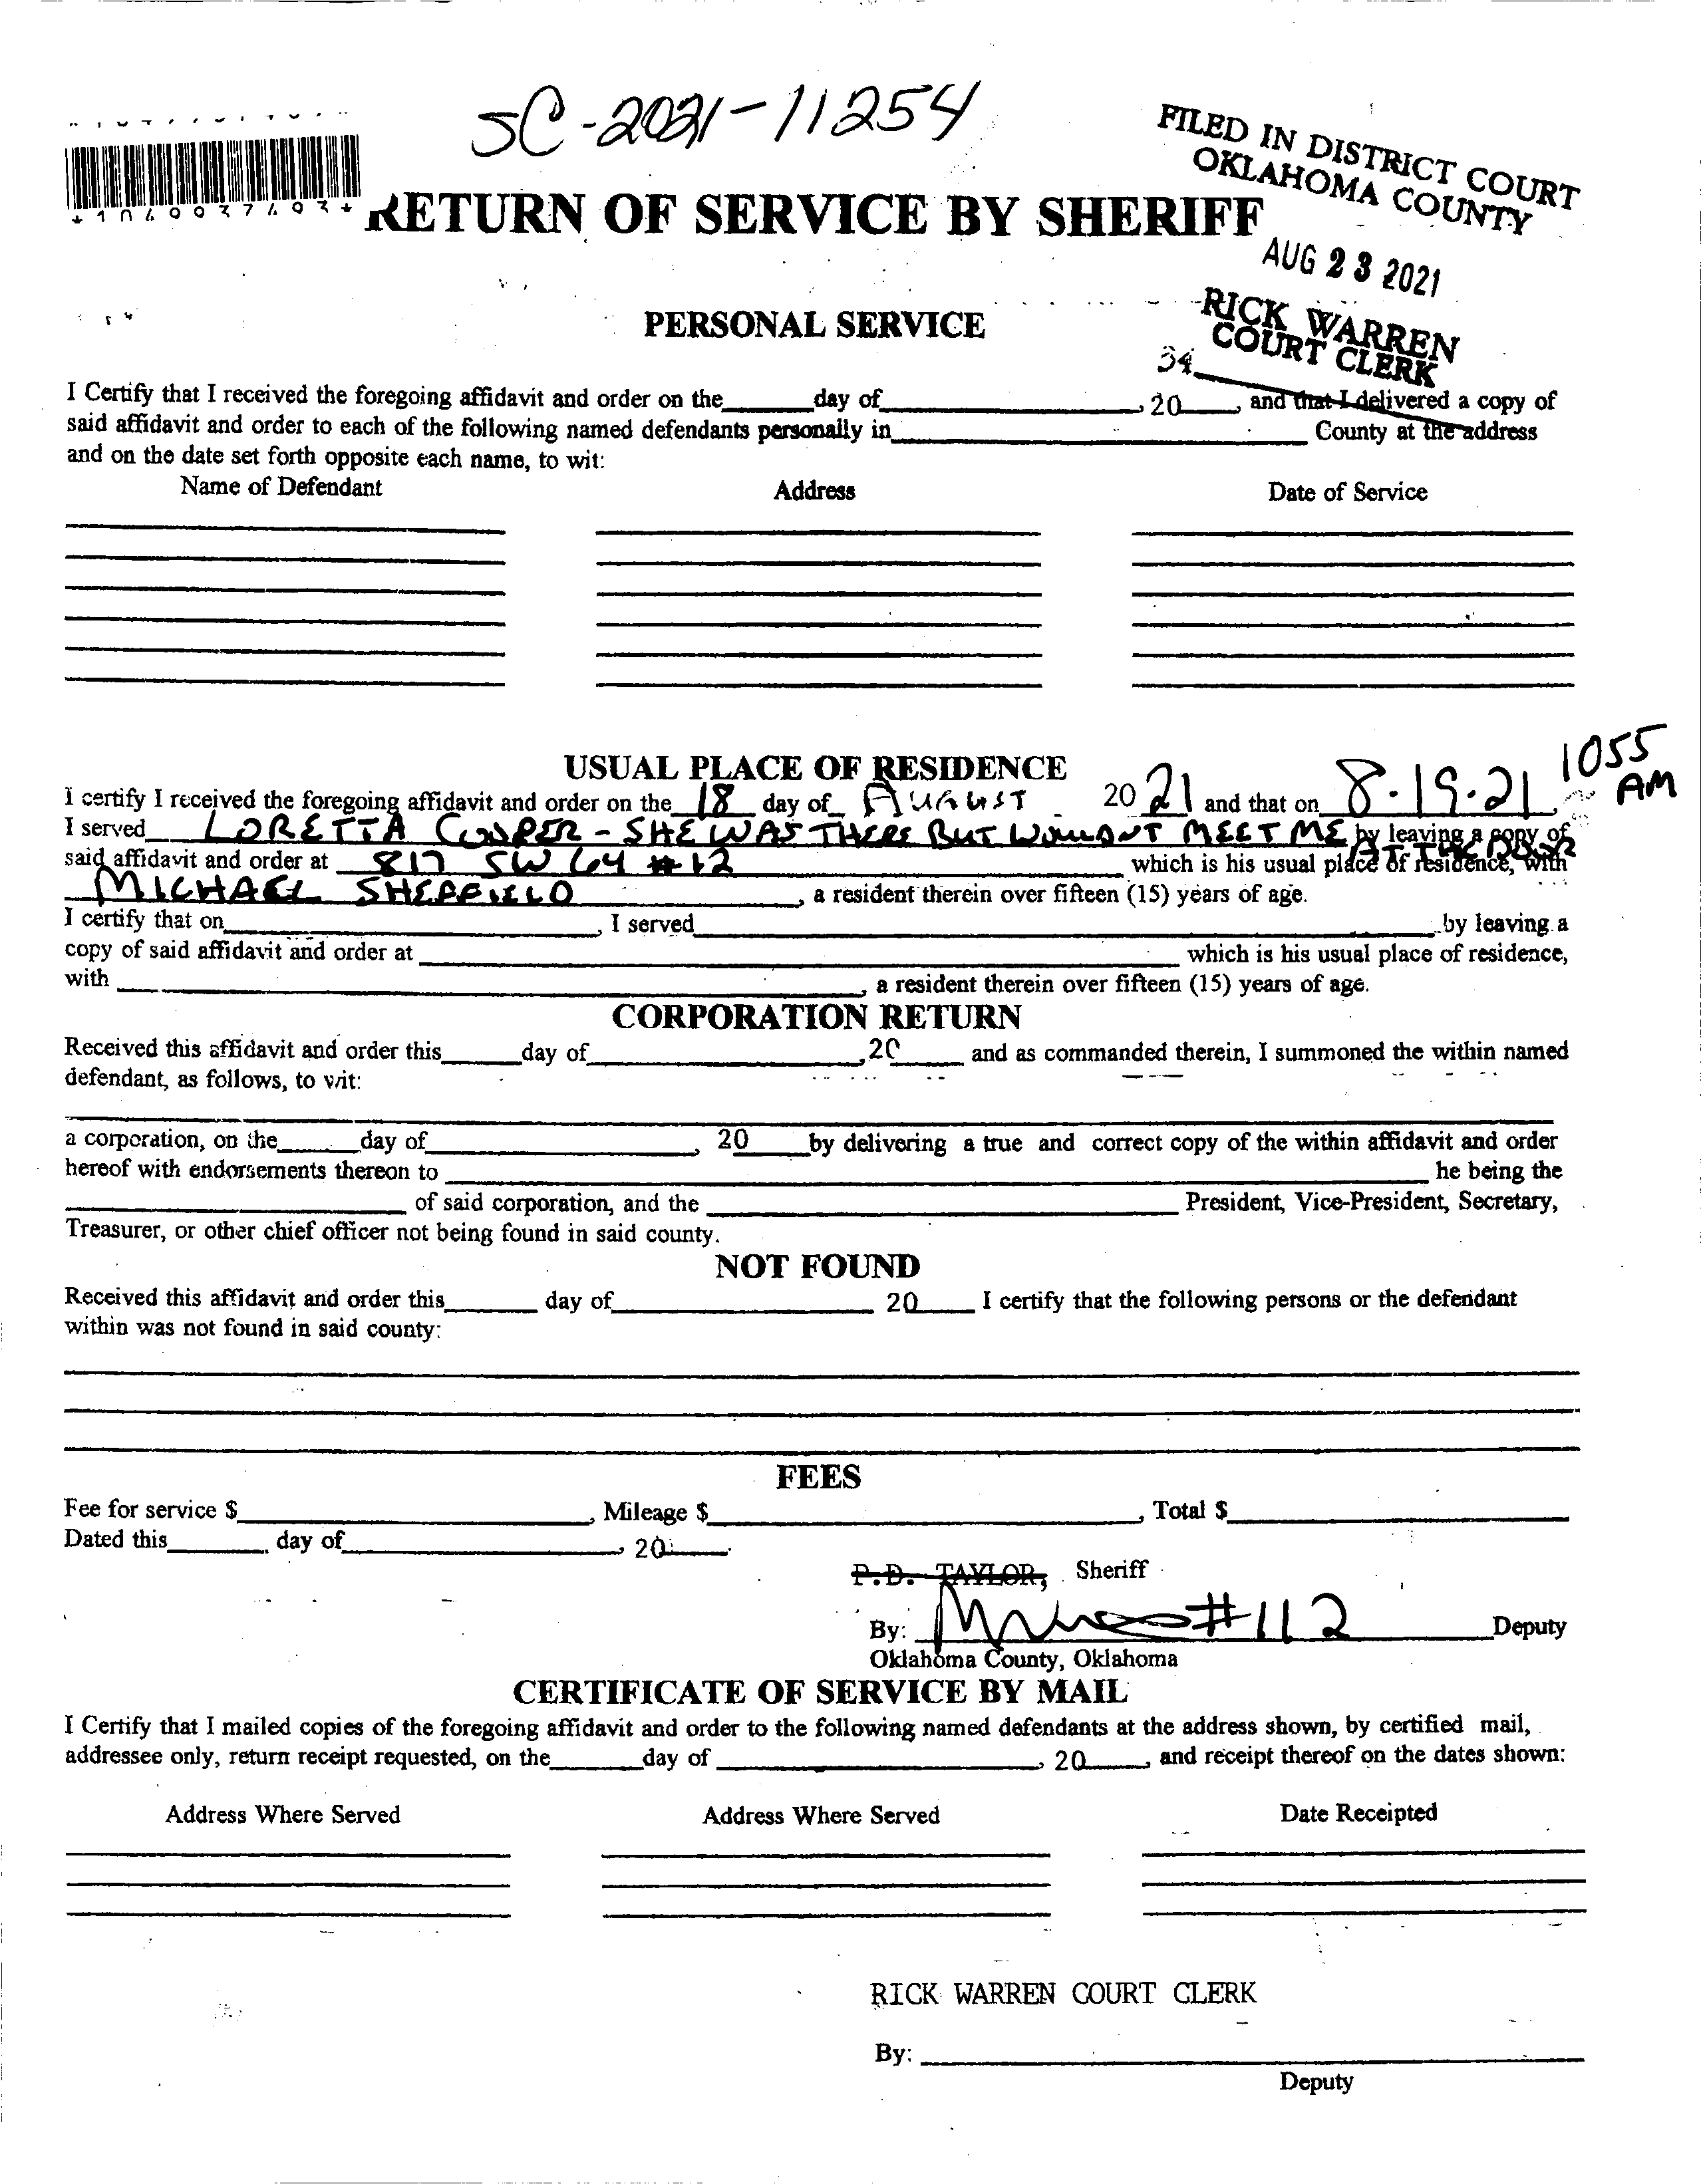 SC-2021-11254
FILED IN DISTRICT COURT
OKLAHOMA COUNTY
RETURN OF SERVICE BY SHERIFF
AUG 23 2021
RICK WARREN
COURT CLERK
PERSONAL SERVICE
34
I Certify that I received the foregoing affidavit and order on the______day of____________________, 20____, and that I delivered a copy of
said affidavit and order to each of the following named defendants personally in____________________ County at the address
and on the date set forth opposite each name, to wit:
Name of Defendant Address Date of Service
USUAL PLACE OF RESIDENCE
1055 AM
I certify I received the foregoing affidavit and order on the 18 day of AUGUST 20 21 and that on 8-19-21,
I served LORETTA COOPER - SHE WAS THERE BUT WOULDNT MEET ME by leaving a copy of
AT THE DOOR
said affidavit and order at 817 SW 64 #12 which is his usual place of residence, with
MICHAEL SHEFFIELD, a resident therein over fifteen (15) years of age.
I certify that on____________________, I served____________________by leaving a
copy of said affidavit and order at ____________________ which is his usual place of residence,
with ____________________, a resident therein over fifteen (15) years of age.
CORPORATION RETURN
Received this affidavit and order this______day of____________________, 20____ and as commanded therein, I summoned the within named
defendant, as follows, to wit:
a corporation, on the______day of____________________, 20____by delivering a true and correct copy of the within affidavit and order
hereof with endorsements thereon to ____________________ he being the
____________________ of said corporation, and the ____________________ President, Vice-President, Secretary,
Treasurer, or other chief officer not being found in said county.
NOT FOUND
Received this affidavit and order this______ day of____________________ 20____ I certify that the following persons or the defendant
within was not found in said county:
FEES
Fee for service $____________________, Mileage $____________________, Total $____________________
Dated this______ day of____________________, 20____.
P.D. TAYLOR, Sheriff
By: #112 Deputy
Oklahoma County, Oklahoma
CERTIFICATE OF SERVICE BY MAIL
I Certify that I mailed copies of the foregoing affidavit and order to the following named defendants at the address shown, by certified mail,
addressee only, return receipt requested, on the______day of ____________________, 20____, and receipt thereof on the dates shown:
Address Where Served Address Where Served Date Receipted
RICK WARREN COURT CLERK
By: ____________________
Deputy